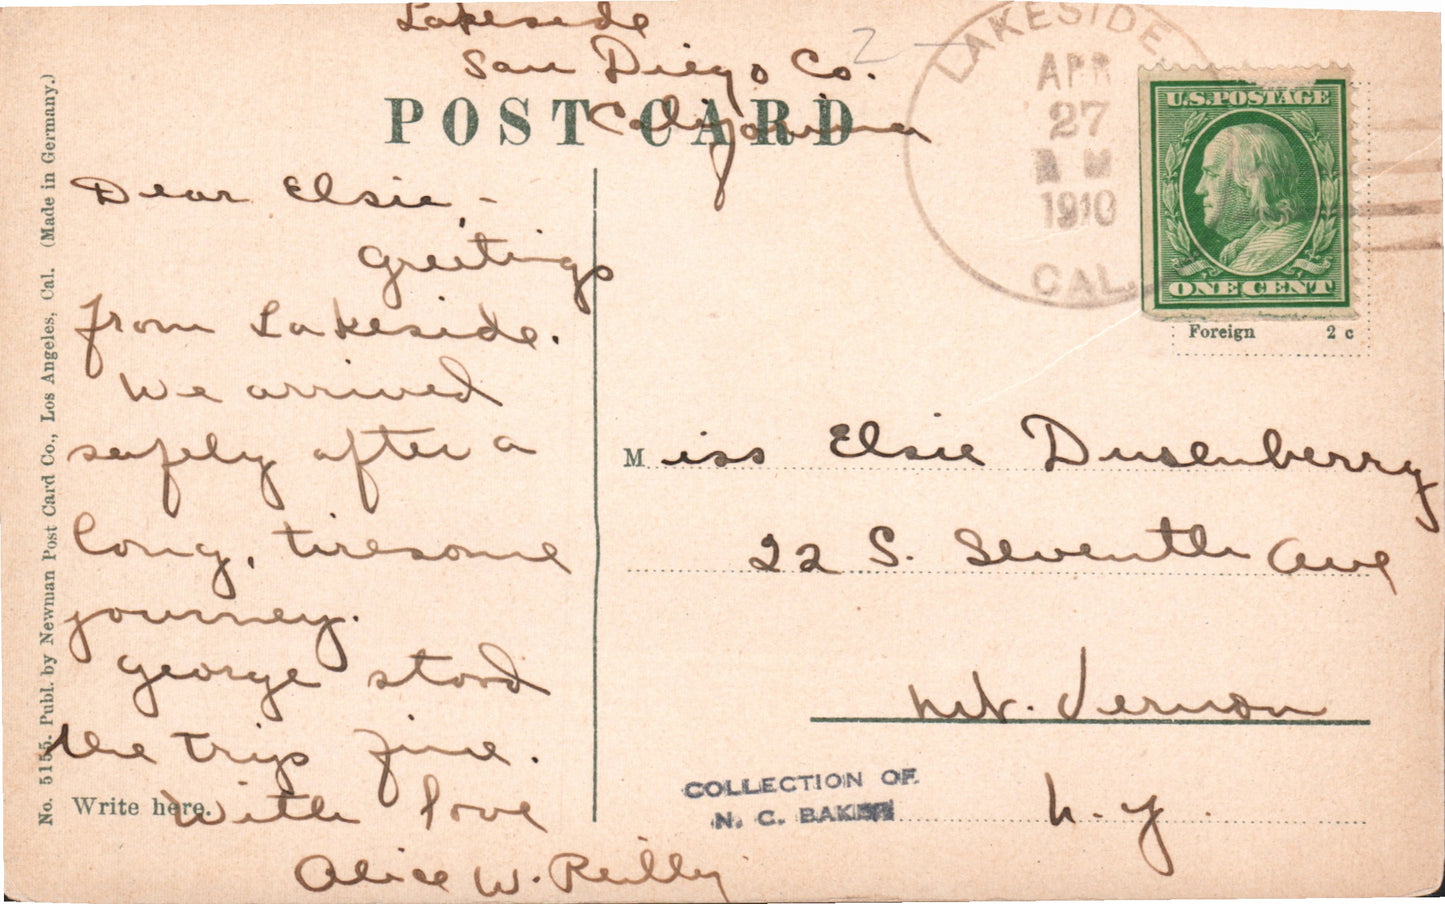 Lakeside
San Diego Co.
California
POST CARD
Dear Elsie, -
Greetings
from Lakeside.
We arrived
safely after a
long, tiresome
journey.
George stood
the trip fine.
With love
Alice W. Reilly
Write here.
No. 5155. Publ. by Newman Post Card Co., Los Angeles, Cal. (Made in Germany.)
2
LAKESIDE,
APR
27
M
1910
CAL.
U.S.POSTAGE
ONE CENT
Foreign 2 c
Miss Elsie Dusenberry
22 S. Seventh Ave
Mt. Vernon
N. Y.
COLLECTION OF
N. C. BAKER